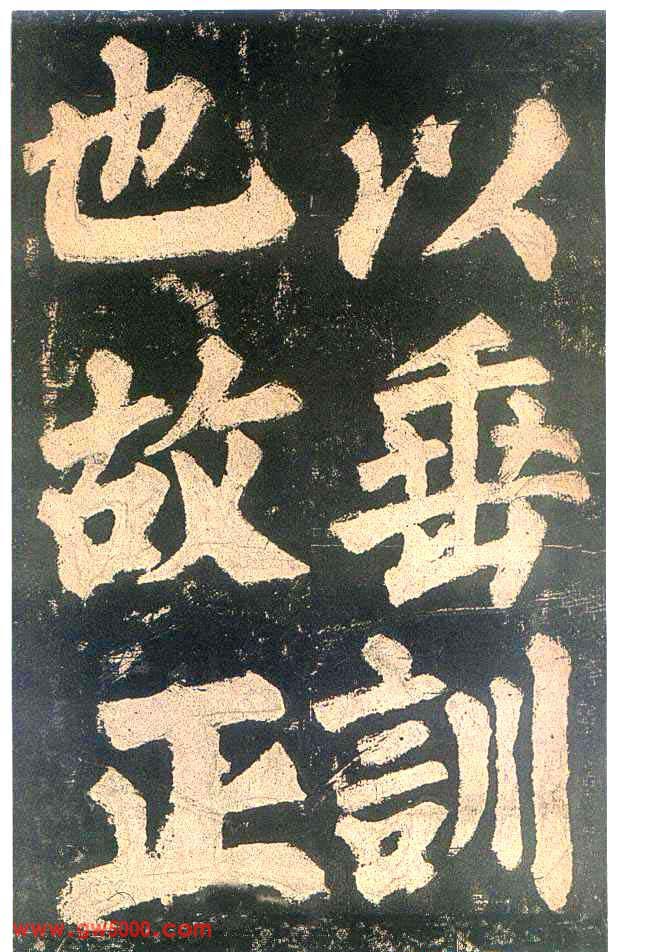 以垂訓
也故正
www.gw5000.com